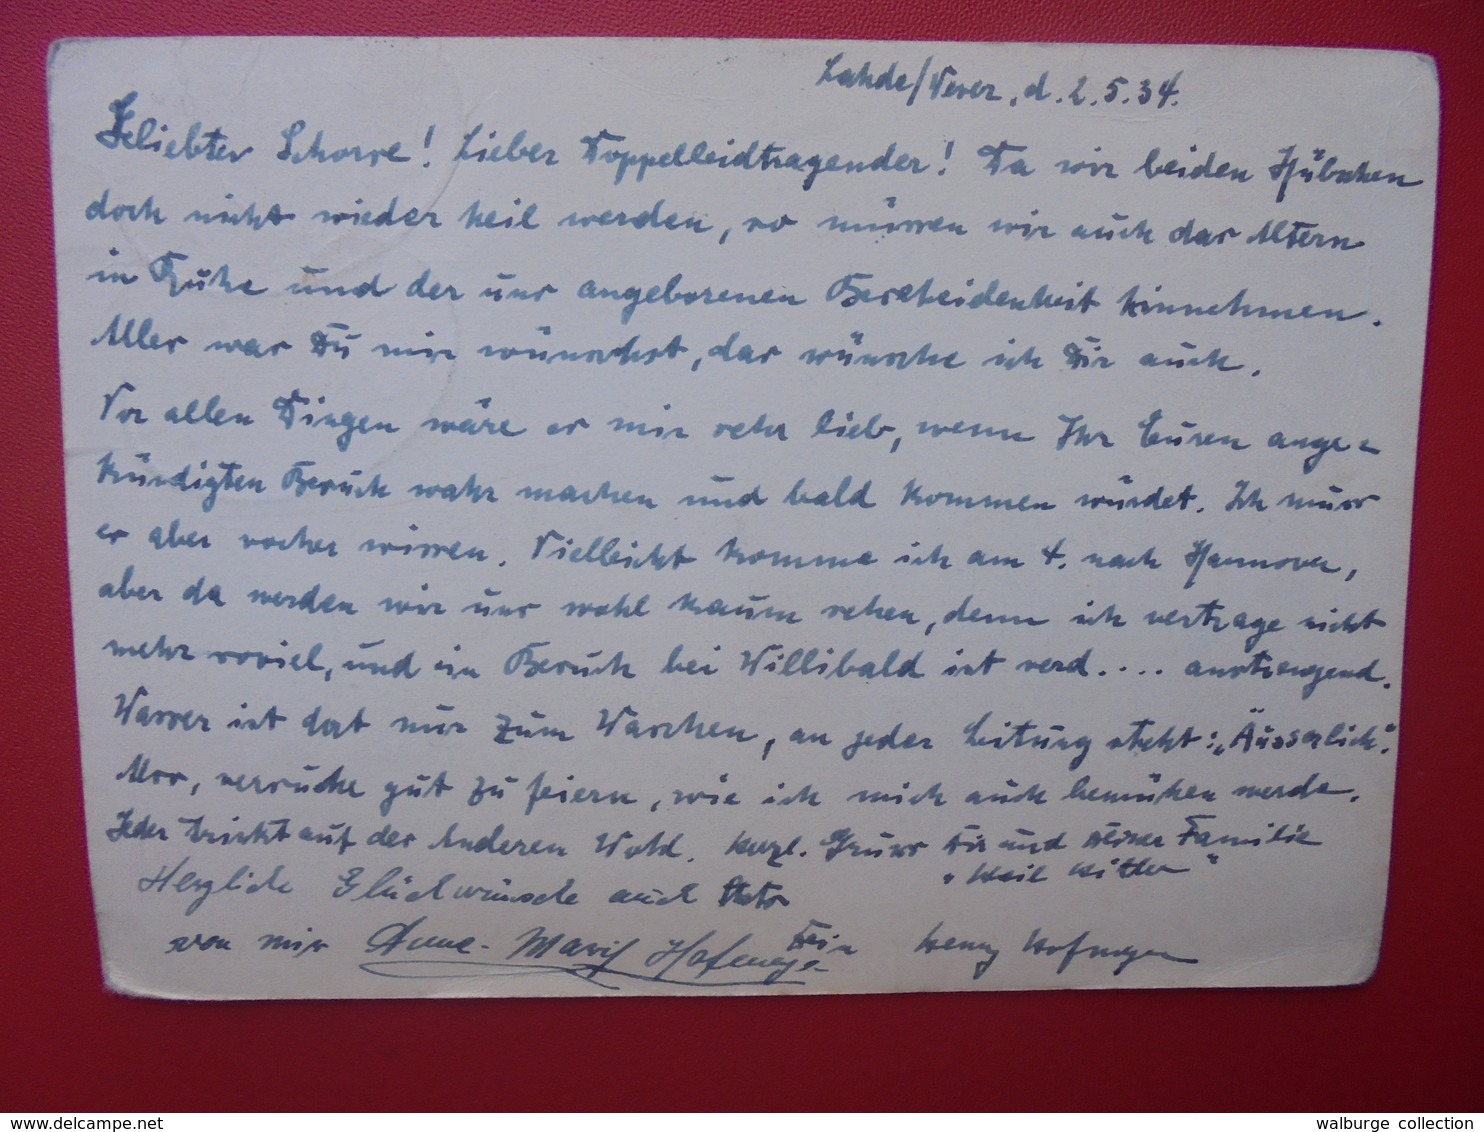 Lahde/Weser, d. 2.5.34.
Geliebter Schorse! Lieber Doppelleidtragender! Da wir beiden Hübschen
doch nicht wieder heil werden, so müssen wir auch das Altern
in Ruhe und der uns angeborenen Bescheidenheit hinnehmen.
Alles was Du mir wünschst, das wünsche ich Dir auch.
Vor allen Dingen wäre es mir sehr lieb, wenn Ihr Euren ange-
kündigten Besuch wahr machen und bald kommen würdet. Ich muss
es aber vorher wissen. Vielleicht komme ich am 4. nach Hannover,
aber da werden wir uns wohl kaum sehen, denn ich vertrage nicht
mehr soviel, und ein Besuch bei Willibald ist verd.... anstrengend.
Wasser ist dort nur zum Waschen, an jeder Leitung steht: „Äusserlich".
Also, versuche gut zu feiern, wie ich mich auch bemühen werde.
Jeder trinkt auf des Anderen Wohl. Herzl. Gruss Dir und deiner Familie
„Heil Hitler"
Herzliche Glückwünsche auch
von mir Anne-Marie Hofmeyer
Dein Henny Hofmeyer
walburge collection